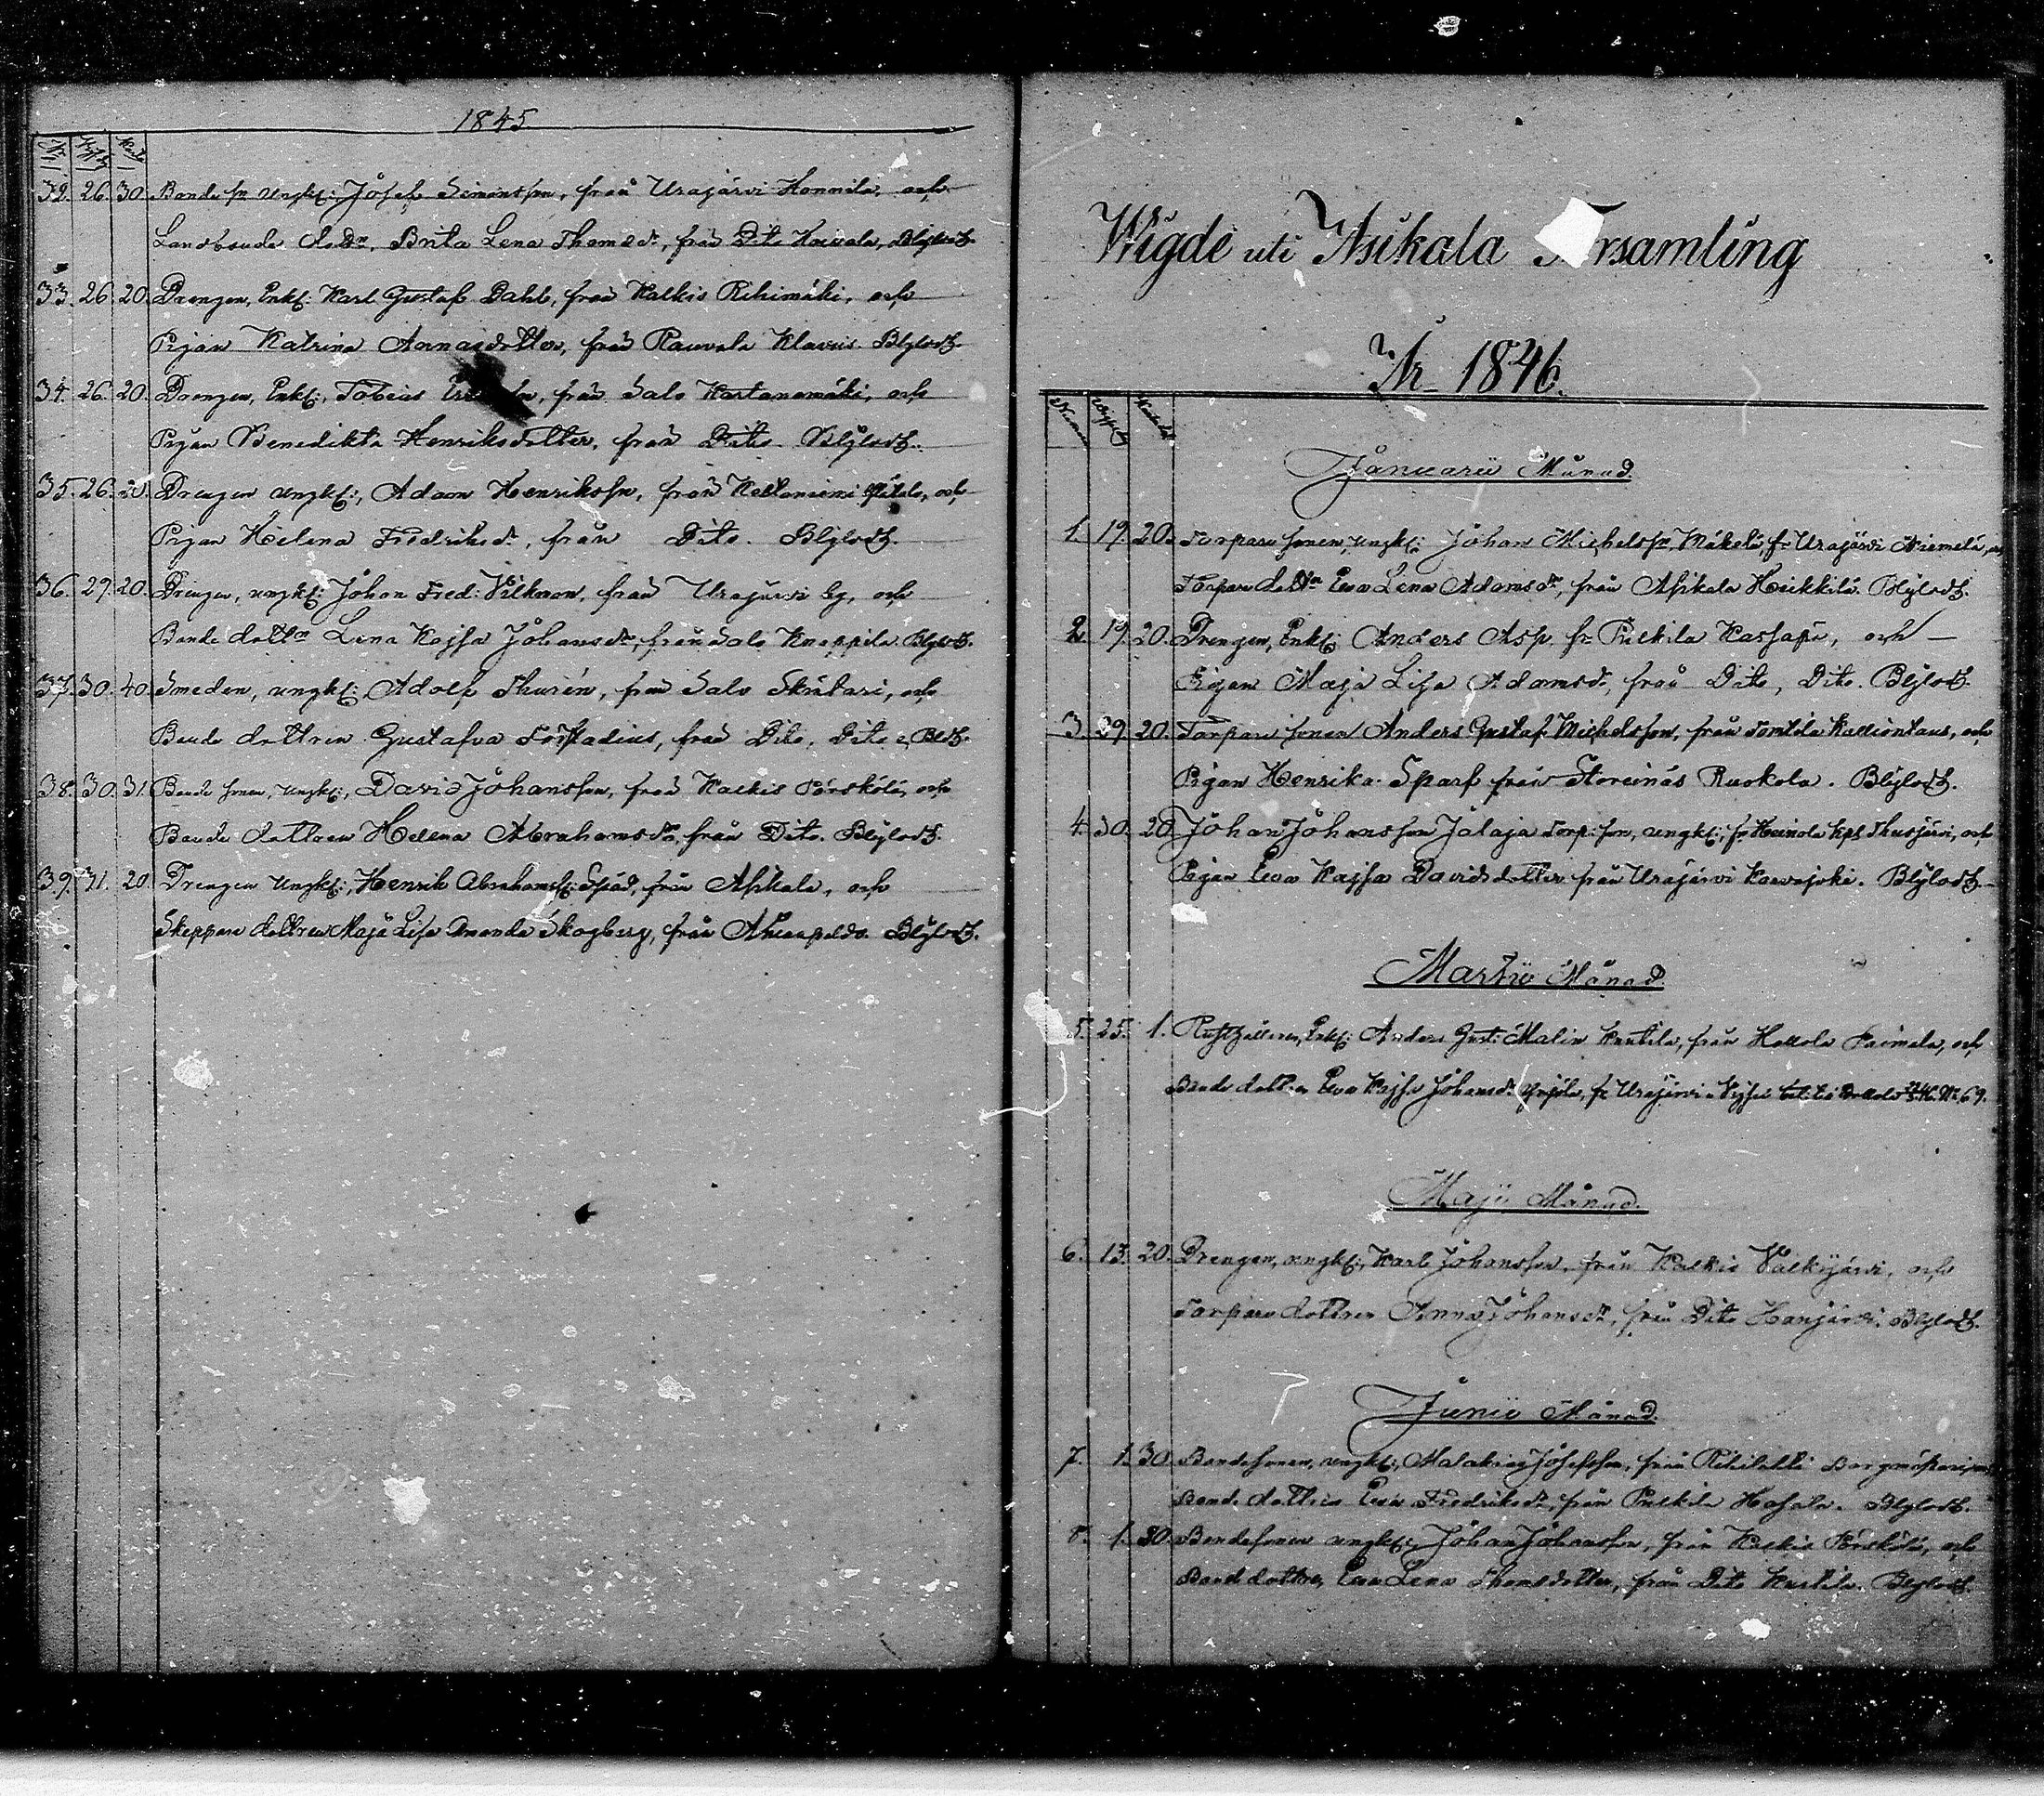 1845
32. 26. 30. Bonde sn ungk: Josef Simonsson, från Urajärvi Hommila, och
Landbonde dottr. Brita Lena Thomasdr, från Dito
33. 26. 20. Drengen, Enkl: Karl Gustaf Dahl, från Kalkis Rihimäki, och
Pigan Katrina Annasdotter, från Rauvala Klavus Blylodt.
34. 26. 20. Drengen, Enkl:, Tobias från Salo Kartanomäki, och
Pigan Benedikta Henriksdotter, från Dito. Blylodt.
35. 26. 20. Drengen ungk:, Adam Henriksson, från Keltaniemi och
Pigan Helena Fredriksdr, från Dito. Blylodt.
36. 29. 20. Drengen, ungk: Johan Fred: Vilkman, från Urajärvi by, och
Bonde dottrn Lena Kajsa Johansdr, från Salo Knoppila Blylodt.
37. 30. 40. Smeden, ungk: Adolf Thurén, från Salo Skutari, och
Bonde dottren Gustafva Forstadius, från Dito, Dito
38. 30. 31. Bonde sonen, ungk:, David Johansson, från Kalkis Pörskölä, och
Bonde dottren Helena Abrahamsdr, från Dito. Blylodt.
39. 31. 20. Drengen ungk:, Henrik Abrahamss: Spåd, från Asikala, och
Skeppare dottren Maja Lisa Amanda Skogberg, från Blylodt.
Wigde uti Asikala rsamling
År 1846.
Januarii Månad.
1. 19. 20. Torpare sonen, ungk: Johan Michelssn Mäkelä, fr Urajärvi Niemelä, och
Torpare dottrn Eva Lena Adamsdr, från Asikala Heikkilä. Blylodt.
2. 19. 20. Drengen, Enkl: Anders Asp fr Pulkila Kassari, och
Pigan Maja Lisa Adamsdr, från Dito, Dito. Blylodt.
3. 29. 20. Torpare sonen Anders Gustaf Michelsson, från Tomtila Kalliontaus, och
Pigan Henrika Sparf från Storeinäs Ruokola. Blylodt.
4. 30. 20. Johan Johansson Jalaja Torp: son, ungk:, fr Heinola kpl och
Pigan Eva Kajsa Davidsdotter från Urajärvi Karvajoki. Blylodt.
Martii Månad.
5. 25. 1. Rusthållaren, Enkl: Anders Gust: Malin från Hollola Paimela, och
Bonde dottren Eva Kajsa Johansdr fr Urajärvi 69.
Maji Månad.
6. 13. 20. Drengen, ungk:, Karl Johansson, från Kalkis Valkijärvi, och
Torpare dottren Anna Johansdr, från Dito Hanjärvi. Blylodt.
Junii Månad.
7. 1. 30. Bondesonen, ungk:, Malakias Josefsson, från
Bonde dottren Eva Fredriksdr, från Pulkila Hasala. Blylodt.
8. 1. 30. Bondesonen ungk:, Johan Johansson, från Kalkis Pörskölä, och
Bonde dottren Eva Lena Thomsdotter, från Dito Kurtila. Blylodt.